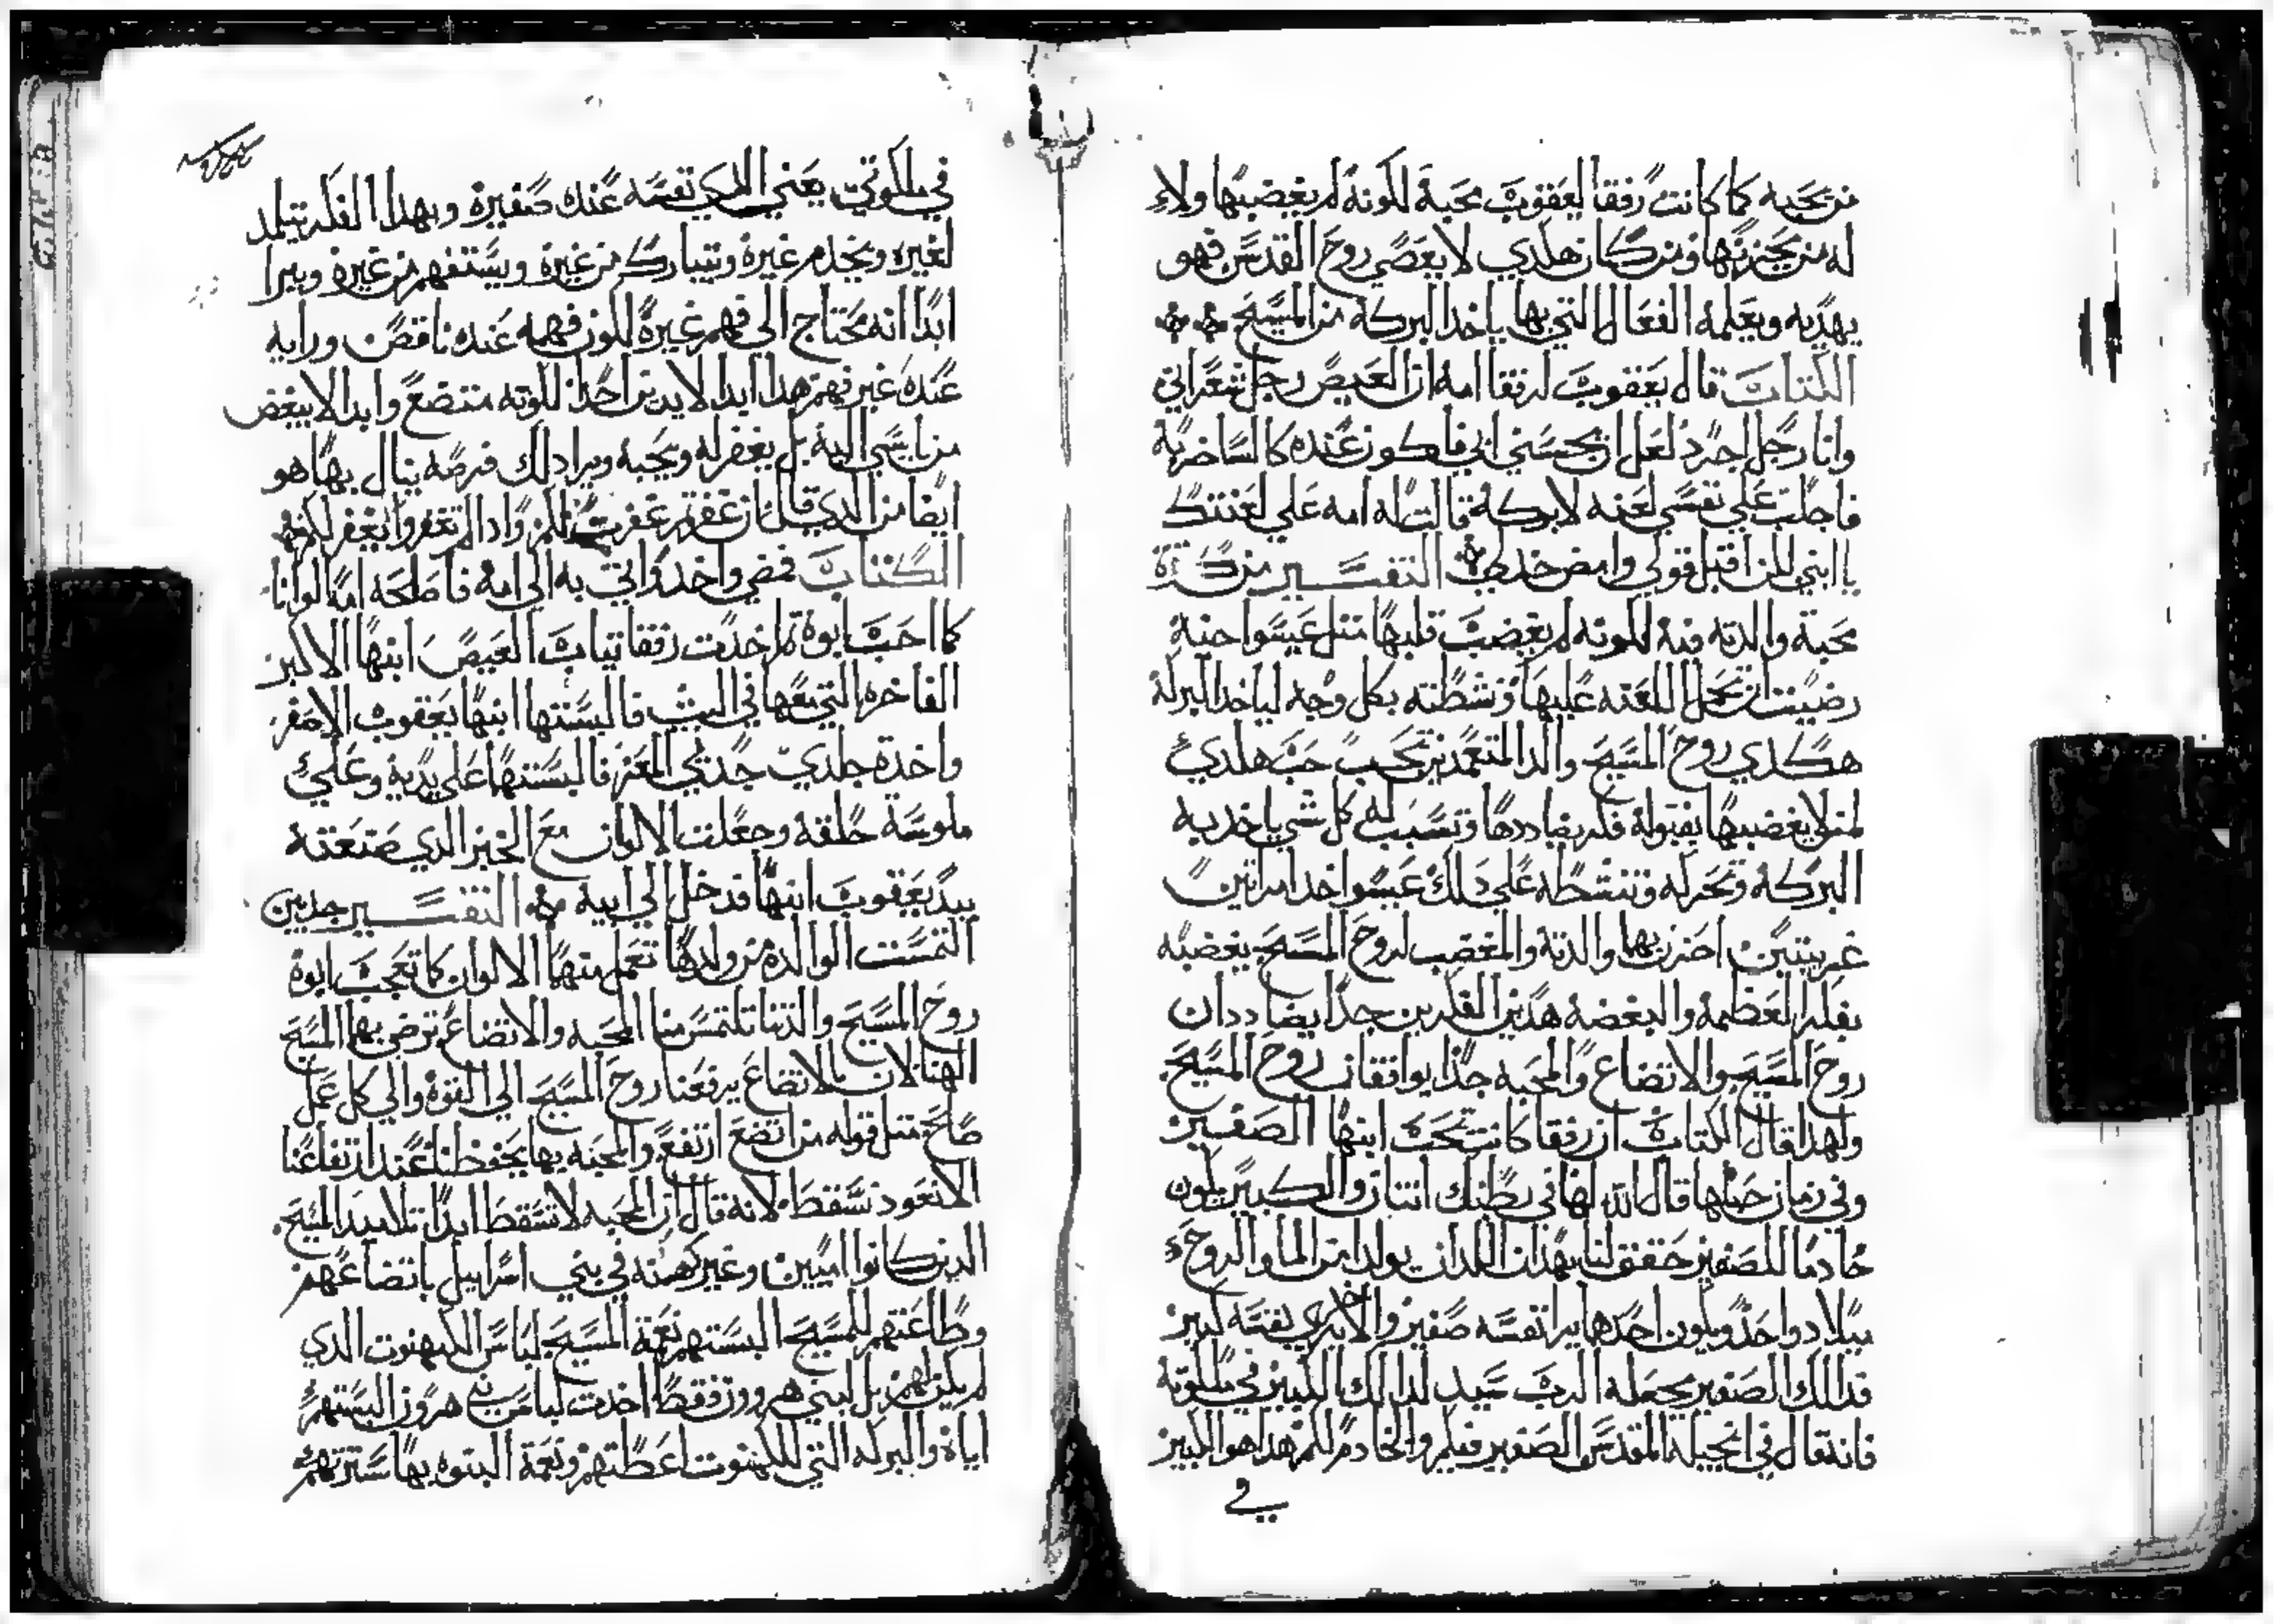 من يحبه كما كانت رفقا ليعقوب محبة لكونه لم يغضبها ولا
له من يحزنها ومن كان هكدي لا يعصي روح القدس فهو
يهديه ويعلمه الفعال التي بها ياخد البركه من المسيح
الكتاب قال يعقوب لرفقا امه ان العيص رجل شعراني
وانا رجل اجرد لعل ان يحسني ابي فاكون عنده كالساخر به
فاجلب علي نفسي لعنه لا بركه قالت له امه علي لعنتك
يا ابني لكن اقبل قولي وامض خد لي التفسير من كترة
محبة والدته فيه لكونه لم يغضب قلبها متل عيسوا حتي
رضيت ان تحمل اللعنه عليها ونشطته بكل وجه لياخد البركه
هكدي روح المسيح والد المتعمدين تحب حب هكدي
لمن لا يغضبها بقبوله فكر يضاددها وتسبب له كل شي ياخد به
البركه وتحركه وتنشطه علي دلك عيسوا اخد امراتين
غريبتين احزن بها والدته والمغضب لروح المسيح يغضبه
بفكر العظمه والبغضه هدين الفكرين جدا يضاددان
روح المسيح والاتضاع والمحبه جدا يوافقان روح المسيح
ولهدا قال الكتاب ان رفقا كانت تحب ابنها الصغير
وفي زمان حبلها قال الله لها في بطنك اتنان والكبير يكون
خادما للصغير حقق لنا بهدا اللدان يولدا من الما والروح
ميلاد واحد ويكون احدهما يرا نفسه صغير والاخر يري نفسه كبير
فدالك الصغير يجعله الرب سيد لدالك الكبير في ملكوته
فانه قال في انجيله المقدس الصغير فيكم والخادم لكم هدا هو الكبير
في
في ملكوتي يعني الدي نفسه عنده صغيره وبهدا الفكر يتلمد
لغيره ويخدم غيره ويتبارك من غيره ويستفهم من غيره ويرا
ابدا انه محتاج الي فهم غيره لكون فهمه عنده ناقص ورايه
عنده غير فهم هدا ابدا لا يدين احدا لكونه متضع وابدا لا يبغض
من اسي اليه بل يغفر له ويحبه ويرا دلك فرصه ينال بها هو
ايضا من الدي قال ان غفرتم غفرت لكم وادا لم تغفروا لم يغفر لكم
الكتاب فمضي واخد واتي به الي امه فاصلحة امه الوانا
كما احب ابوه تم اخدت رفقا تياب العيص ابنها الاكبر
الفاخره التي معها في البيت فالبستها ابنها يعقوب الاصغر
واخدة جلدي جدي المعز فالبستها علي يديه وعلي
ملوسة حلقه وجعلت الالوان مع الخبز الدي صنعته
بيد يعقوب ابنها فدخل الي ابيه التفسير جديين
التمست الوالده من ولدها تعمل منها الالوان كما تعجب ابوه
روح المسيح والدتنا تلتمس منا المحبه والاتضاع ترضي بها المسيح
الهنا لان بالاتضاع يرفعنا روح المسيح الي القوه والي كل عمل
صالح متل قوله من اتضع ارتفع والمحبه بها يحفظنا عند ارتفاعنا
الا نعود نسقط لانه قال ان المحبه لا تسقط ابدا تلاميد المسيح
الدين كانوا اميين وغير كهنه في بني اسراييل باتضاعهم
وطاعتهم للمسيح البستهم نعمة المسيح لباس الكهنوت الدي
لم يكن لهم بل لبني هرون فقط اخدت لباس بني هرون البستهم
اياه والبركه التي للكهنوت اعطتهم ونعمة البنوه بها سترتهم